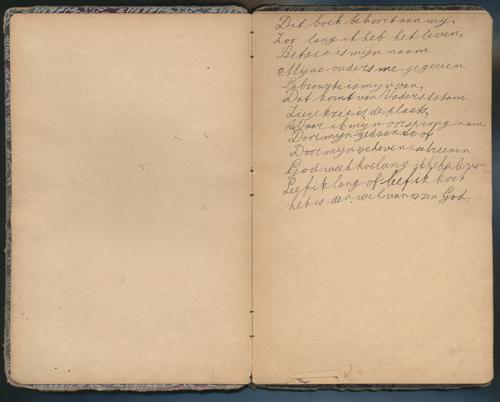 Dit boek behoort aan my.
Zoo lang ik heb het leven,
Betsie is mijn naam
Mijne ouders me gegeven.
is mijn van,
Dat komt van Vaders stam
Zierikzee is de plaats,
Waar ik mijn oorsprong nam
Door mijn
Door mijn schreven
God weet hoelang ik heb leven
Leef ik lang of leef ik kort
het is de wil van onzen God.